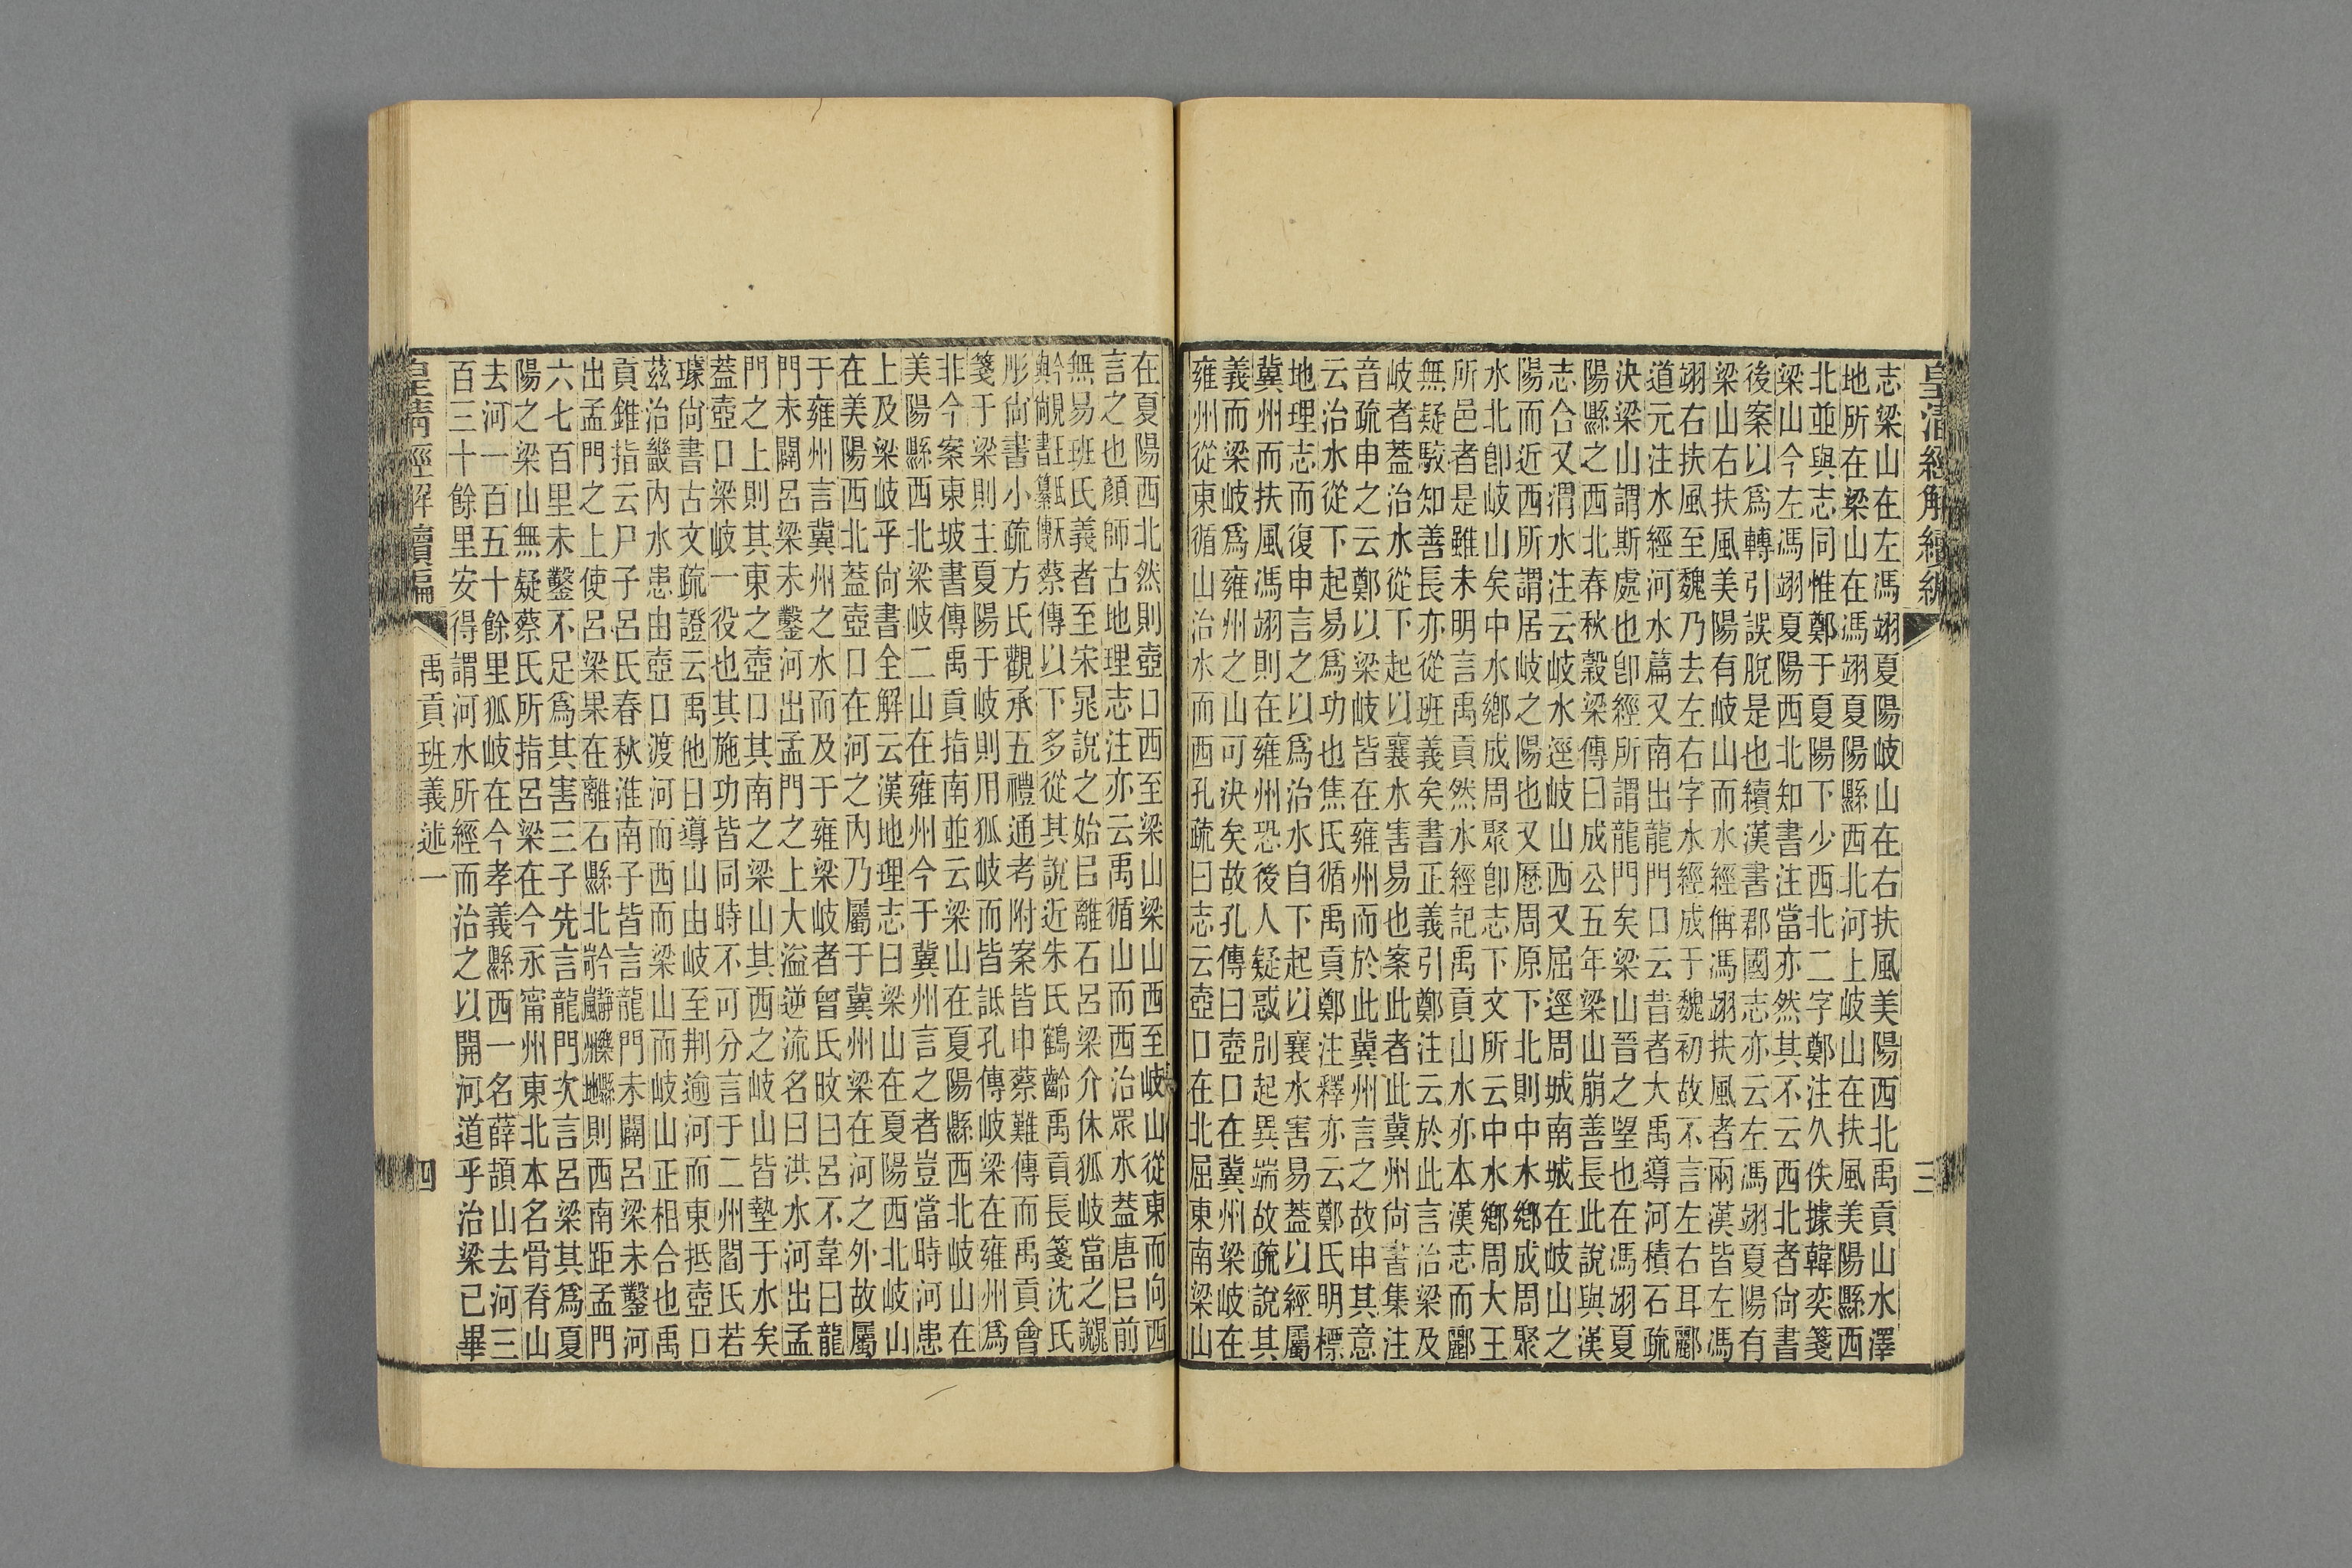 皇清經解續編
三
志梁山在左馮翊夏陽岐山在右扶風美陽西北禹貢山水澤
地所在梁山在馮翊夏陽縣西北河上岐山在扶風美陽縣西
北並與志同惟鄭于夏陽下少西北二字鄭注久佚據韓奕箋
梁山今左馮翊夏陽西北知書注當亦然其不云西北者尙書
後案以爲轉引誤脫是也續漢書郡國志亦云左馮翊夏陽有
梁山右扶風美陽有岐山而水經偁馮翊扶風者兩漢皆左馮
翊右扶風至魏乃去左右字水經成于魏初故不言左右耳酈
道元注水經河水篇又南出龍門口云昔者大禹導河積石疏
決梁山謂斯處也卽經所謂龍門矣梁山晉之望也在馮翊夏
陽縣之西北春秋穀梁傳曰成公五年梁山崩善長此說與漢
志合又渭水注云岐水逕岐山西又屈逕周城南城在岐山之
陽而近西所謂居岐之陽也又歷周原下北則中水鄉成周聚
水北卽岐山矣中水鄉成周聚卽志下文所云中水鄉周大王
所邑者是雖未明言禹貢然水經記禹貢山水亦本漢志而酈
無疑駮知善長亦從班義矣書正義引鄭注云於此言治梁及
岐者蓋治水從下起以襄水害易也案此者此冀州尙書集注
音疏申之云鄭以梁岐皆在雍州而於此冀州言之故申其意
云治水從下起易爲功也焦氏循禹貢鄭注釋亦云鄭氏明標
地理志而復申言之以爲治水自下起以襄水害易蓋以經屬
冀州而扶風馮翊則在雍州恐後人疑惑別起異端故疏說其
義而梁岐爲雍州之山可決矣故孔傳曰壺口在冀州梁岐在
雍州從東循山治水而西孔疏曰志云壺口在北屈東南梁山
在夏陽西北然則壺口西至梁山梁山西至岐山從東而向西
言之也顏師古地理志注亦云禹循山而西治眾水蓋唐㠯前
無易班氏義者至宋晁說之始㠯離石呂梁介休狐岐當之
蔡傳以下多從其說近朱氏鶴齡禹貢長箋沈氏
彤尙書小疏方氏觀承五禮通考附案皆申蔡難傳而禹貢會
箋于梁則主夏陽于岐則用狐岐而皆詆孔傳岐梁在雍州爲
非今案東坡書傳禹貢指南並云梁山在夏陽縣西北岐山在
美陽縣西北梁岐二山在雍州今于冀州言之者豈當時河患
上及梁岐乎尙書全解云漢地理志曰梁山在夏陽西北岐山
在美陽西北蓋壺口在河之內乃屬于冀州梁在河之外故屬
于雍州言冀州之水而及于雍梁岐者曾氏旼曰呂不韋曰龍
門未闢呂梁未鑿河出孟門之上大溢逆流名曰洪水河出孟
門之上則其東之壺口其南之梁山其西之岐山皆墊于水矣
蓋壺口梁岐一役也其施功皆同時不可分言于二州閻氏若
璩尙書古文疏證云禹他日導山由岐至荆逾河而東抵壺口
茲治畿內水患由壺口渡河而西而梁山而岐山正相合也禹
貢錐指云尸子呂氏春秋淮南子皆言龍門未闢呂梁未鑿河
出孟門之上使呂梁果在離石縣北則西南距孟門
六七百里未鑿不足爲其害三子先言龍門次言呂梁其爲夏
陽之梁山無疑蔡氏所指呂梁在今永甯州東北本名骨脊山
去河一百五十餘里狐岐在今孝義縣西一名薛頡山去河三
百三十餘里安得謂河水所經而治之以開河道乎治梁已畢
皇清經解續編
禹貢班義述一
四